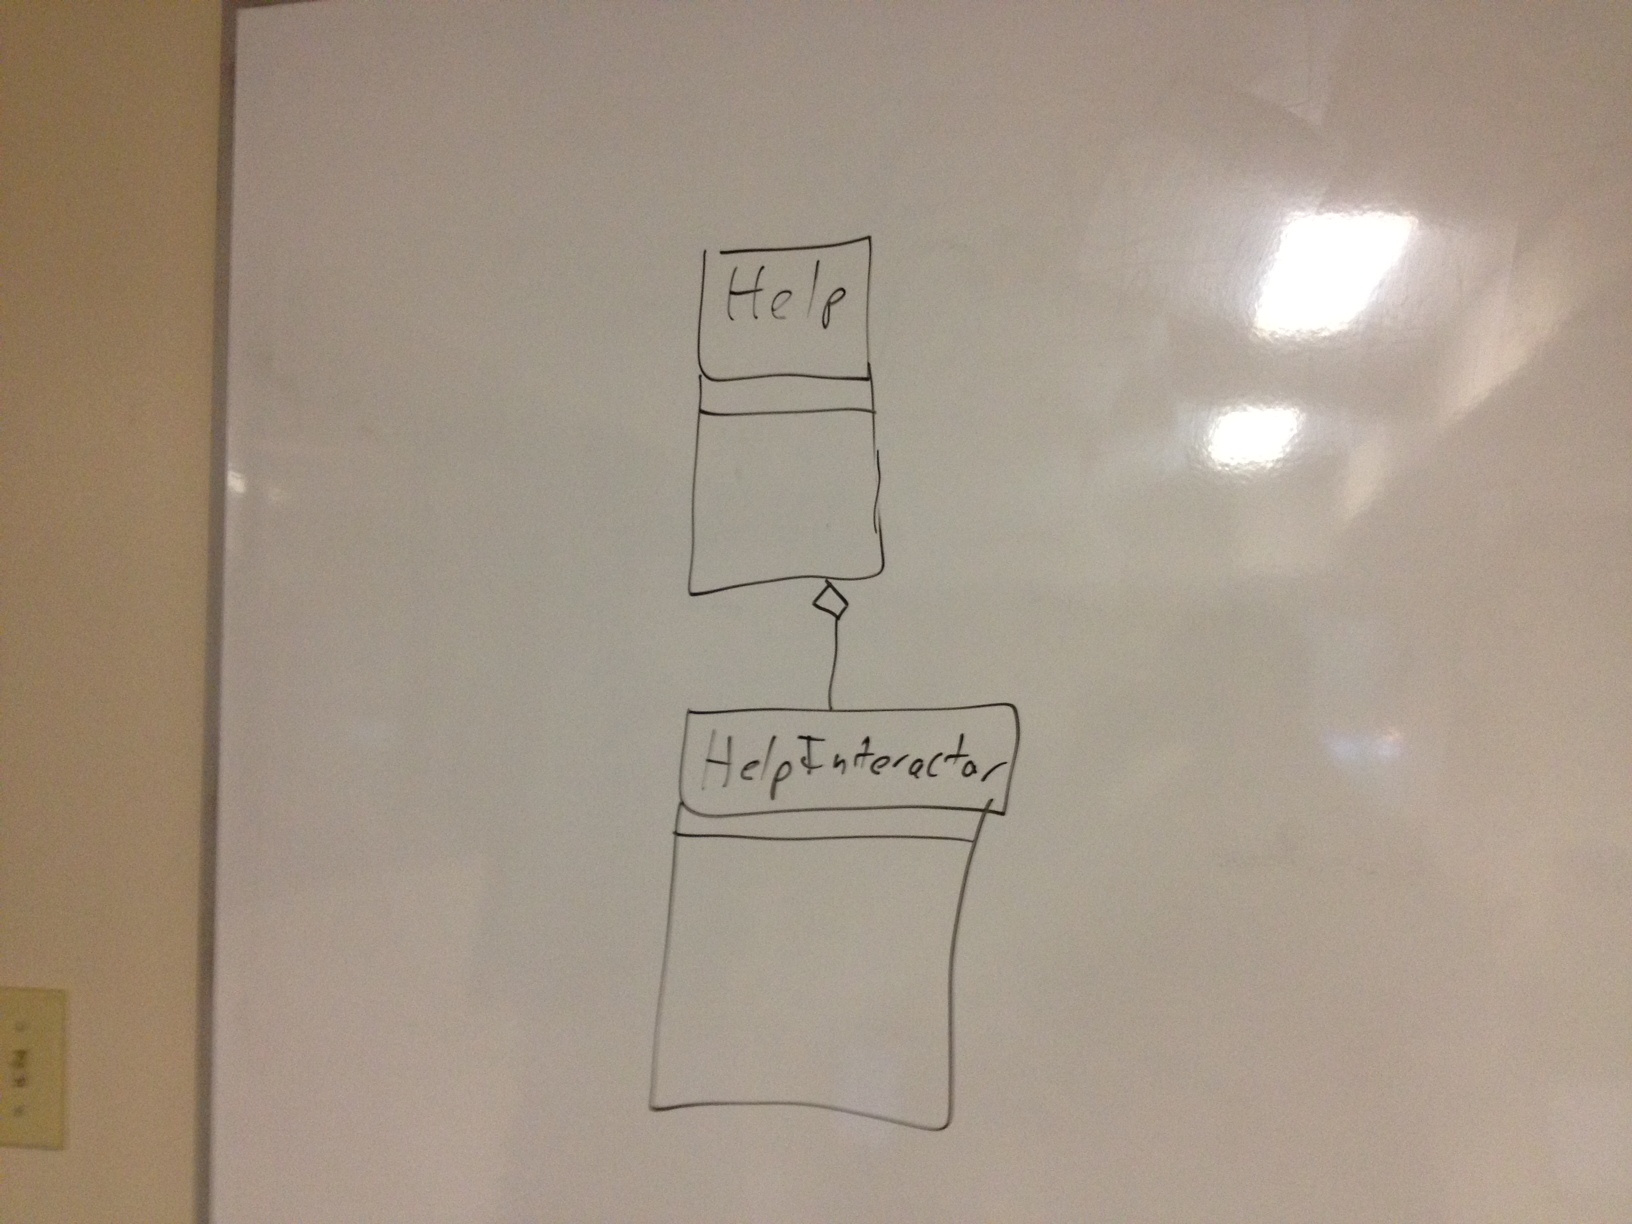 Help
HelpInteractor